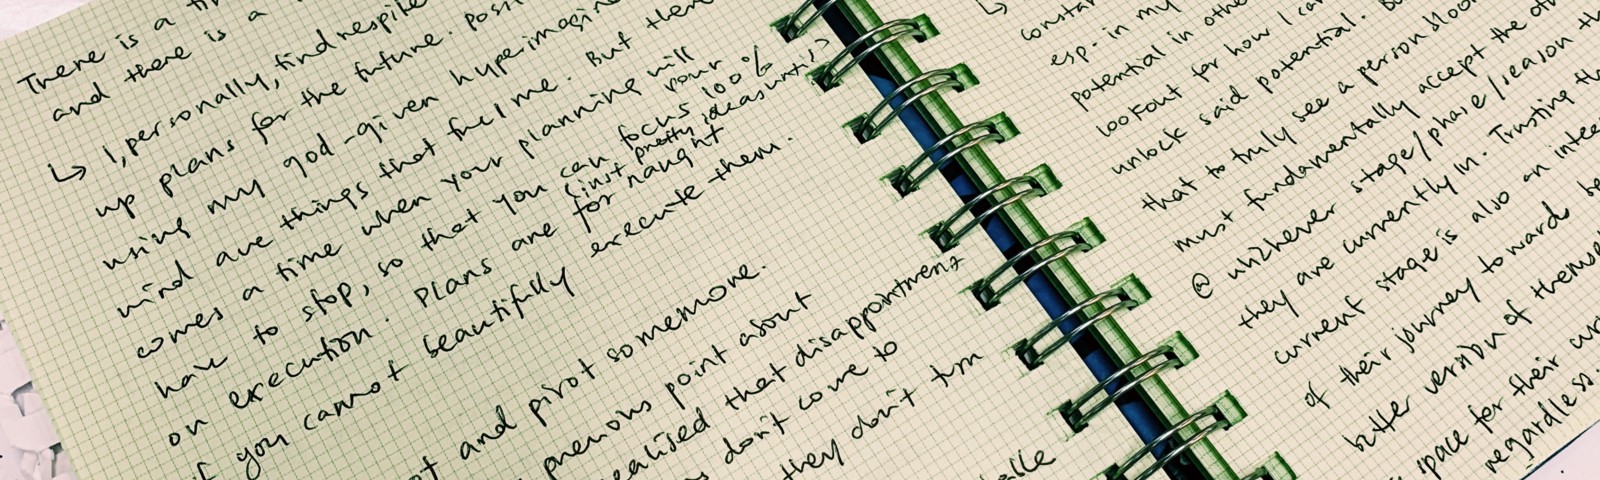 There is a
and there is a
↳ I, personally, find respite
up plans for the future.
using my god-given hyperimagin
mind are things that fuel me. But there
comes a time when your planning will
have to stop, so that you can focus 100%
your
on execution. Plans are for naught
first pretty ideas
if you cannot beautifully execute them.
and pivot somemore.
previous point about
realised that disappointment
don't come to
they don't turn
↳ constan
esp. in my
potential in othe
lookout for how I can
unlock said potential.
that to truly see a person bloom
must fundamentally accept the
@ whichever stage/phase/season th
they are currently in. Trusting th
current stage is also an integ
of their journey toward be
better version of themse
space for their
regardless.